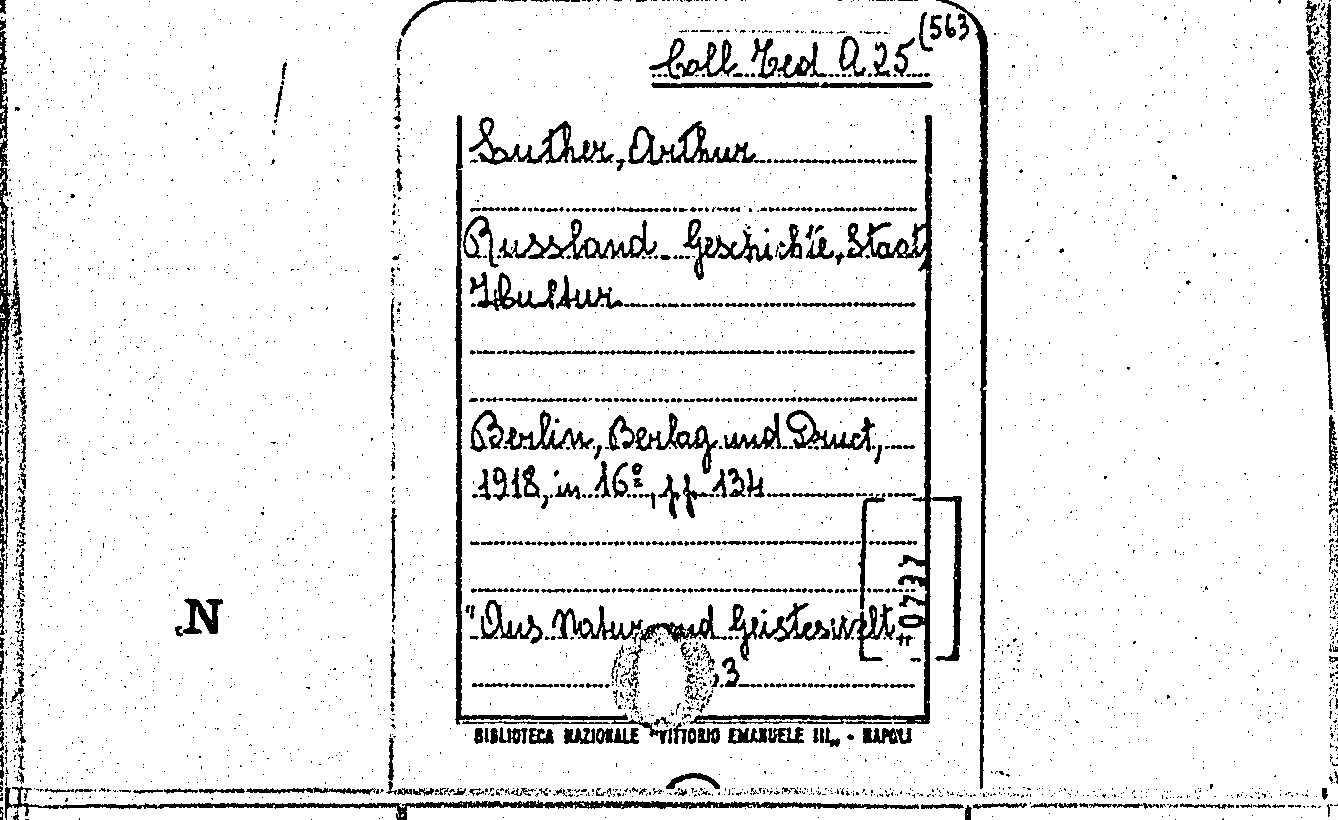 Coll. Ted A 25 (563
Luther, Arthur
Russland. Geschichte, Staat,
Kultur
Berlin, Berlag und Druct,
1918, in 16º, pp. 134
"Aus Natur und Geisteswelt"
,3
#0737
N
BIBLIOTECA NAZIONALE "VITTORIO EMANUELE III„ - NAPOLI